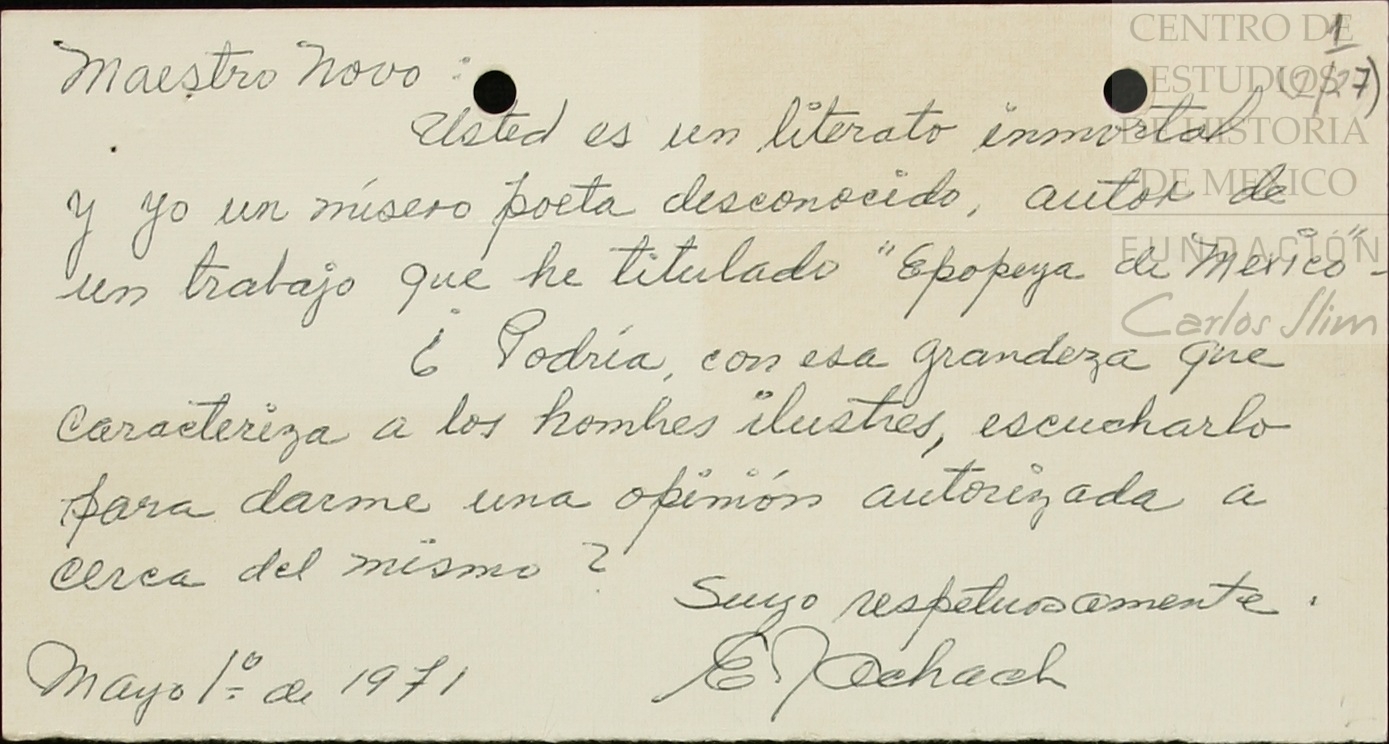 Maestro Novo :
Usted es un literato inmortal
y yo un mísero poeta desconocido, autor de
un trabajo que he titulado "Epopeya de México" -
¿ Podría, con esa grandeza que
caracteriza a los hombres ilustres, escucharlo
para darme una opinión autorizada a
cerca del mismo ?
Suyo respetuosamente .
Mayo 1º de 1971
1
CENTRO DE
ESTUDIOS
DE HISTORIA
DE MEXICO
FUNDACIÓN
Carlos Slim